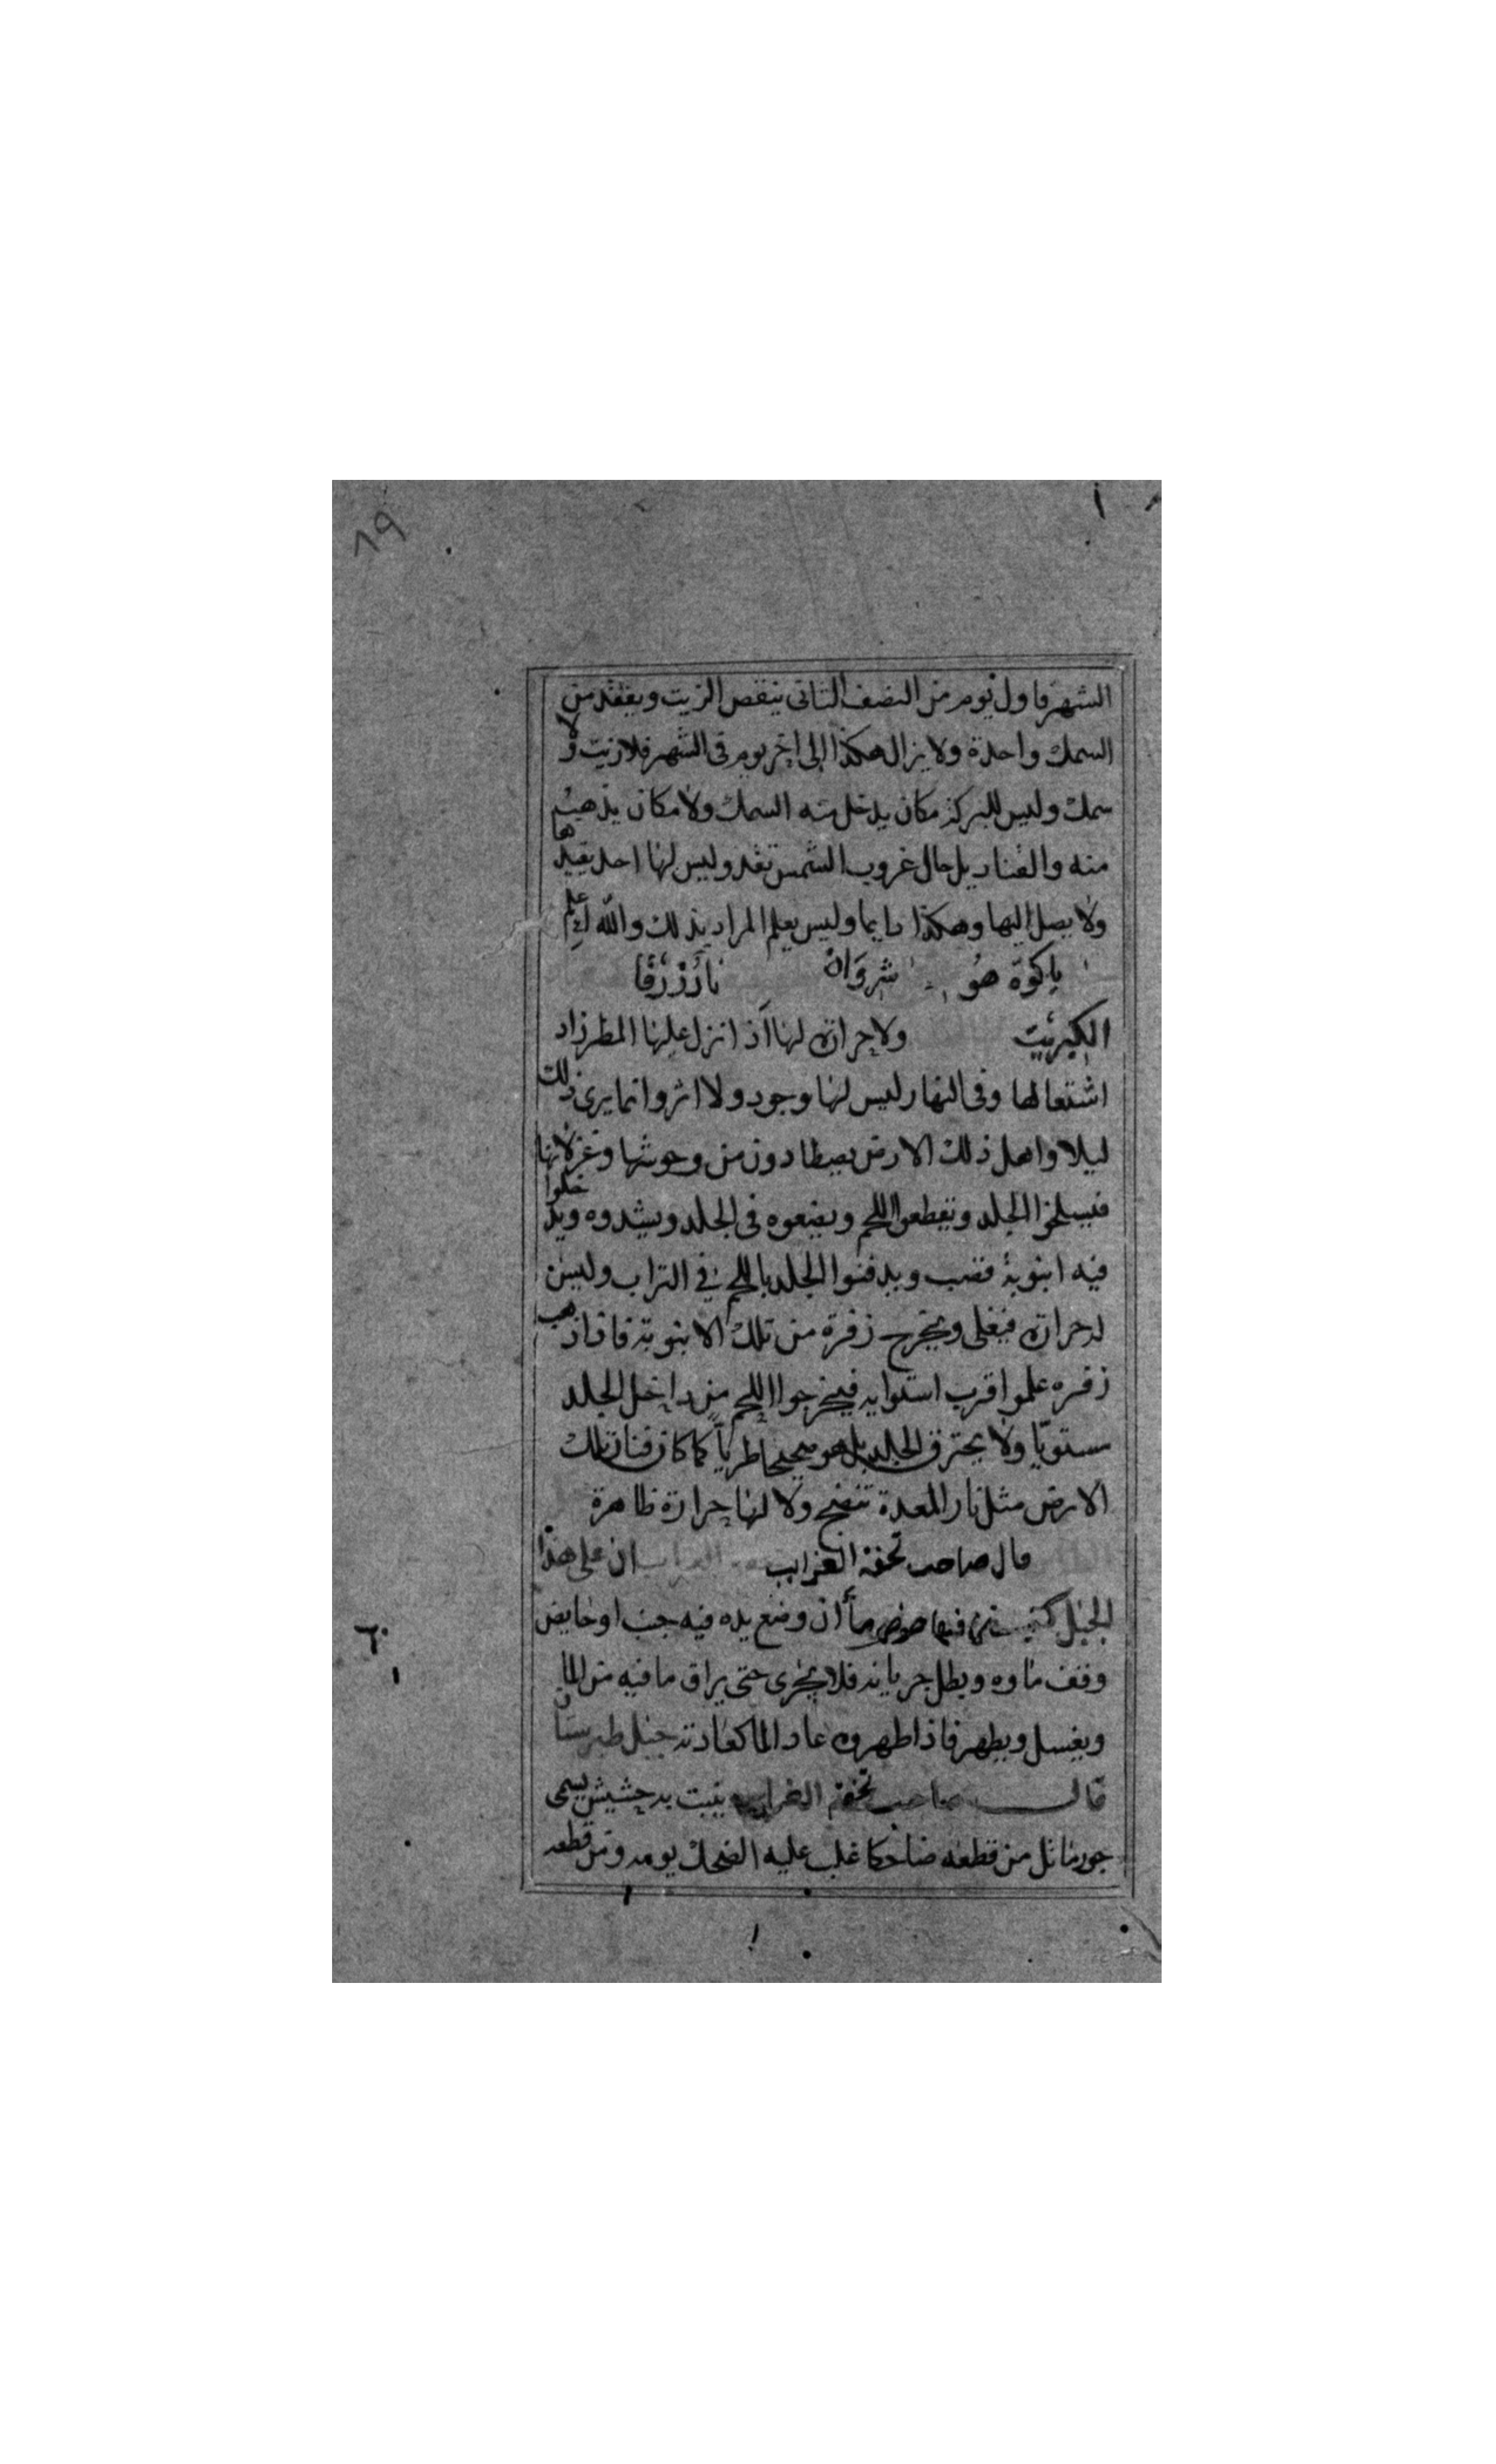 ٦٩
الشهر فاول يوم من النصف الثاني ينقص الزيت ويفقد من
السمك واحدة ولا يزال هكذا إلى اخر يوم في الشهر فلا زيت ولا
سمك وليس للبركة مكان يدخل منه السمك ولا مكان يذهب
منه والقناديل حال غروب الشمس تقد وليس لها احد يقيدها
ولا يصل اليها وهكذا دايما وليس يعلم المراد بذلك والله اعلم
باكوة هو شروان نار زرقا
الكبريت ولا حرارة لها اذا نزل عليها المطر زاد
اشتعالها وفي النهار ليس لها وجود ولا اثر وانما يرى ذلك
ليلا واهل ذلك الارض يصطادون من وحوشها وغزلانها
فيسلخوا الجلد وتقطعوا اللحم ويضعوه في الجلد ويشدوه ويدخلوا
فيه انبوبة قصب ويدفنوا الجلد باللحم في التراب وليس
له حرارة فيغلي ويخرج زفرة من تلك الانبوبة فاذا ذهب
زفره علموا قرب استوايه فيخرجوا اللحم من داخل الجلد
مستويا ولا يحترق الجلد بل هو صحيحا طريا كما كان فنار تلك
الارض مثل نار المعدة تنضج ولا لها حرارة ظاهرة
قال صاحب تحفة الغرايب ان على هذا
الجبل فيها حوض ما ان وضع يده فيه جنب او حايض
وقف ماوه وبطل جريانه فلا يجرى حتى يراق ما فيه من الما
ويغسل ويطهر فاذا طهروه عاد الما كعادته جبل طبرستان
قال صاحب تحفة الغرايب ينبت به حشيش يسمى
جورماثل من قطعه ضاحكا غلب عليه الضحك يومه ومن قطعه